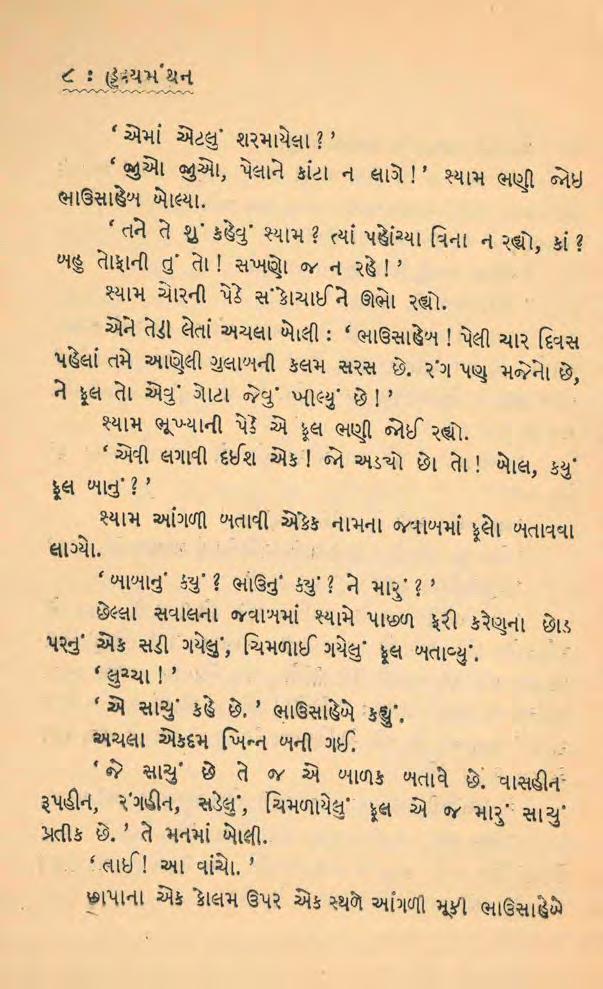 ૮ : હૃદયમંથન
‘ એમાં એટલું શરમાયેલા ? ’
‘ જુઓ જુઓ, પેલાને કાંટા ન લાગે ! ’ શ્યામ ભણી જોઇ
ભાઉસાહેબ બોલ્યા.
‘ તને તે શું કહેવું શ્યામ ? ત્યાં પહોંચ્યા વિના ન રહ્યો, કાં ?
બહુ તોફાની તું તો ! સખણો જ ન રહે ! ’
શ્યામ ચોરની પેઠે સંકોચાઈને ઊભો રહ્યો.
એને તેડી લેતાં અચલા બોલી : ‘ ભાઉસાહેબ ! પેલી ચાર દિવસ
પહેલાં તમે આણેલી ગુલાબની કલમ સરસ છે. રંગ પણ મજેનો છે,
ને ફૂલ તો એવું ગોટા જેવું ખીલ્યું છે ! ’
શ્યામ ભૂખ્યાની પેઠે એ ફૂલ ભણી જોઈ રહ્યો.
‘ એવી લગાવી દઈશ એક ! જો અડચો છો તો ! બોલ, કયું
ફૂલ બાનું ? ’
શ્યામ આંગળી બતાવી એકેક નામના જવાબમાં ફૂલો બતાવવા
લાગ્યો.
‘ બાબાનું કયું ? ભાઉનું કયું ? ને મારું ? ’
છેલ્લા સવાલના જવાબમાં શ્યામે પાછળ ફરી કરેણના છોડ
પરનું એક સડી ગયેલું, ચિમળાઈ ગયેલું ફૂલ બતાવ્યું.
‘ લુચ્ચા ! ’
‘ એ સાચું કહે છે. ’ ભાઉસાહેબે કહ્યું.
અચલા એકદમ ખિન્ન બની ગઈ.
‘ જે સાચું છે તે જ એ બાળક બતાવે છે. વાસહીન
રૂપહીન, રંગહીન, સડેલું, ચિમળાયેલું ફૂલ એ જ મારું સાચું
પ્રતીક છે. ’ તે મનમાં બોલી.
‘ તાઈ ! આ વાંચો. ’
છાપાના એક કોલમ ઉપર એક સ્થળે આંગળી મૂકી ભાઉસાહેબે